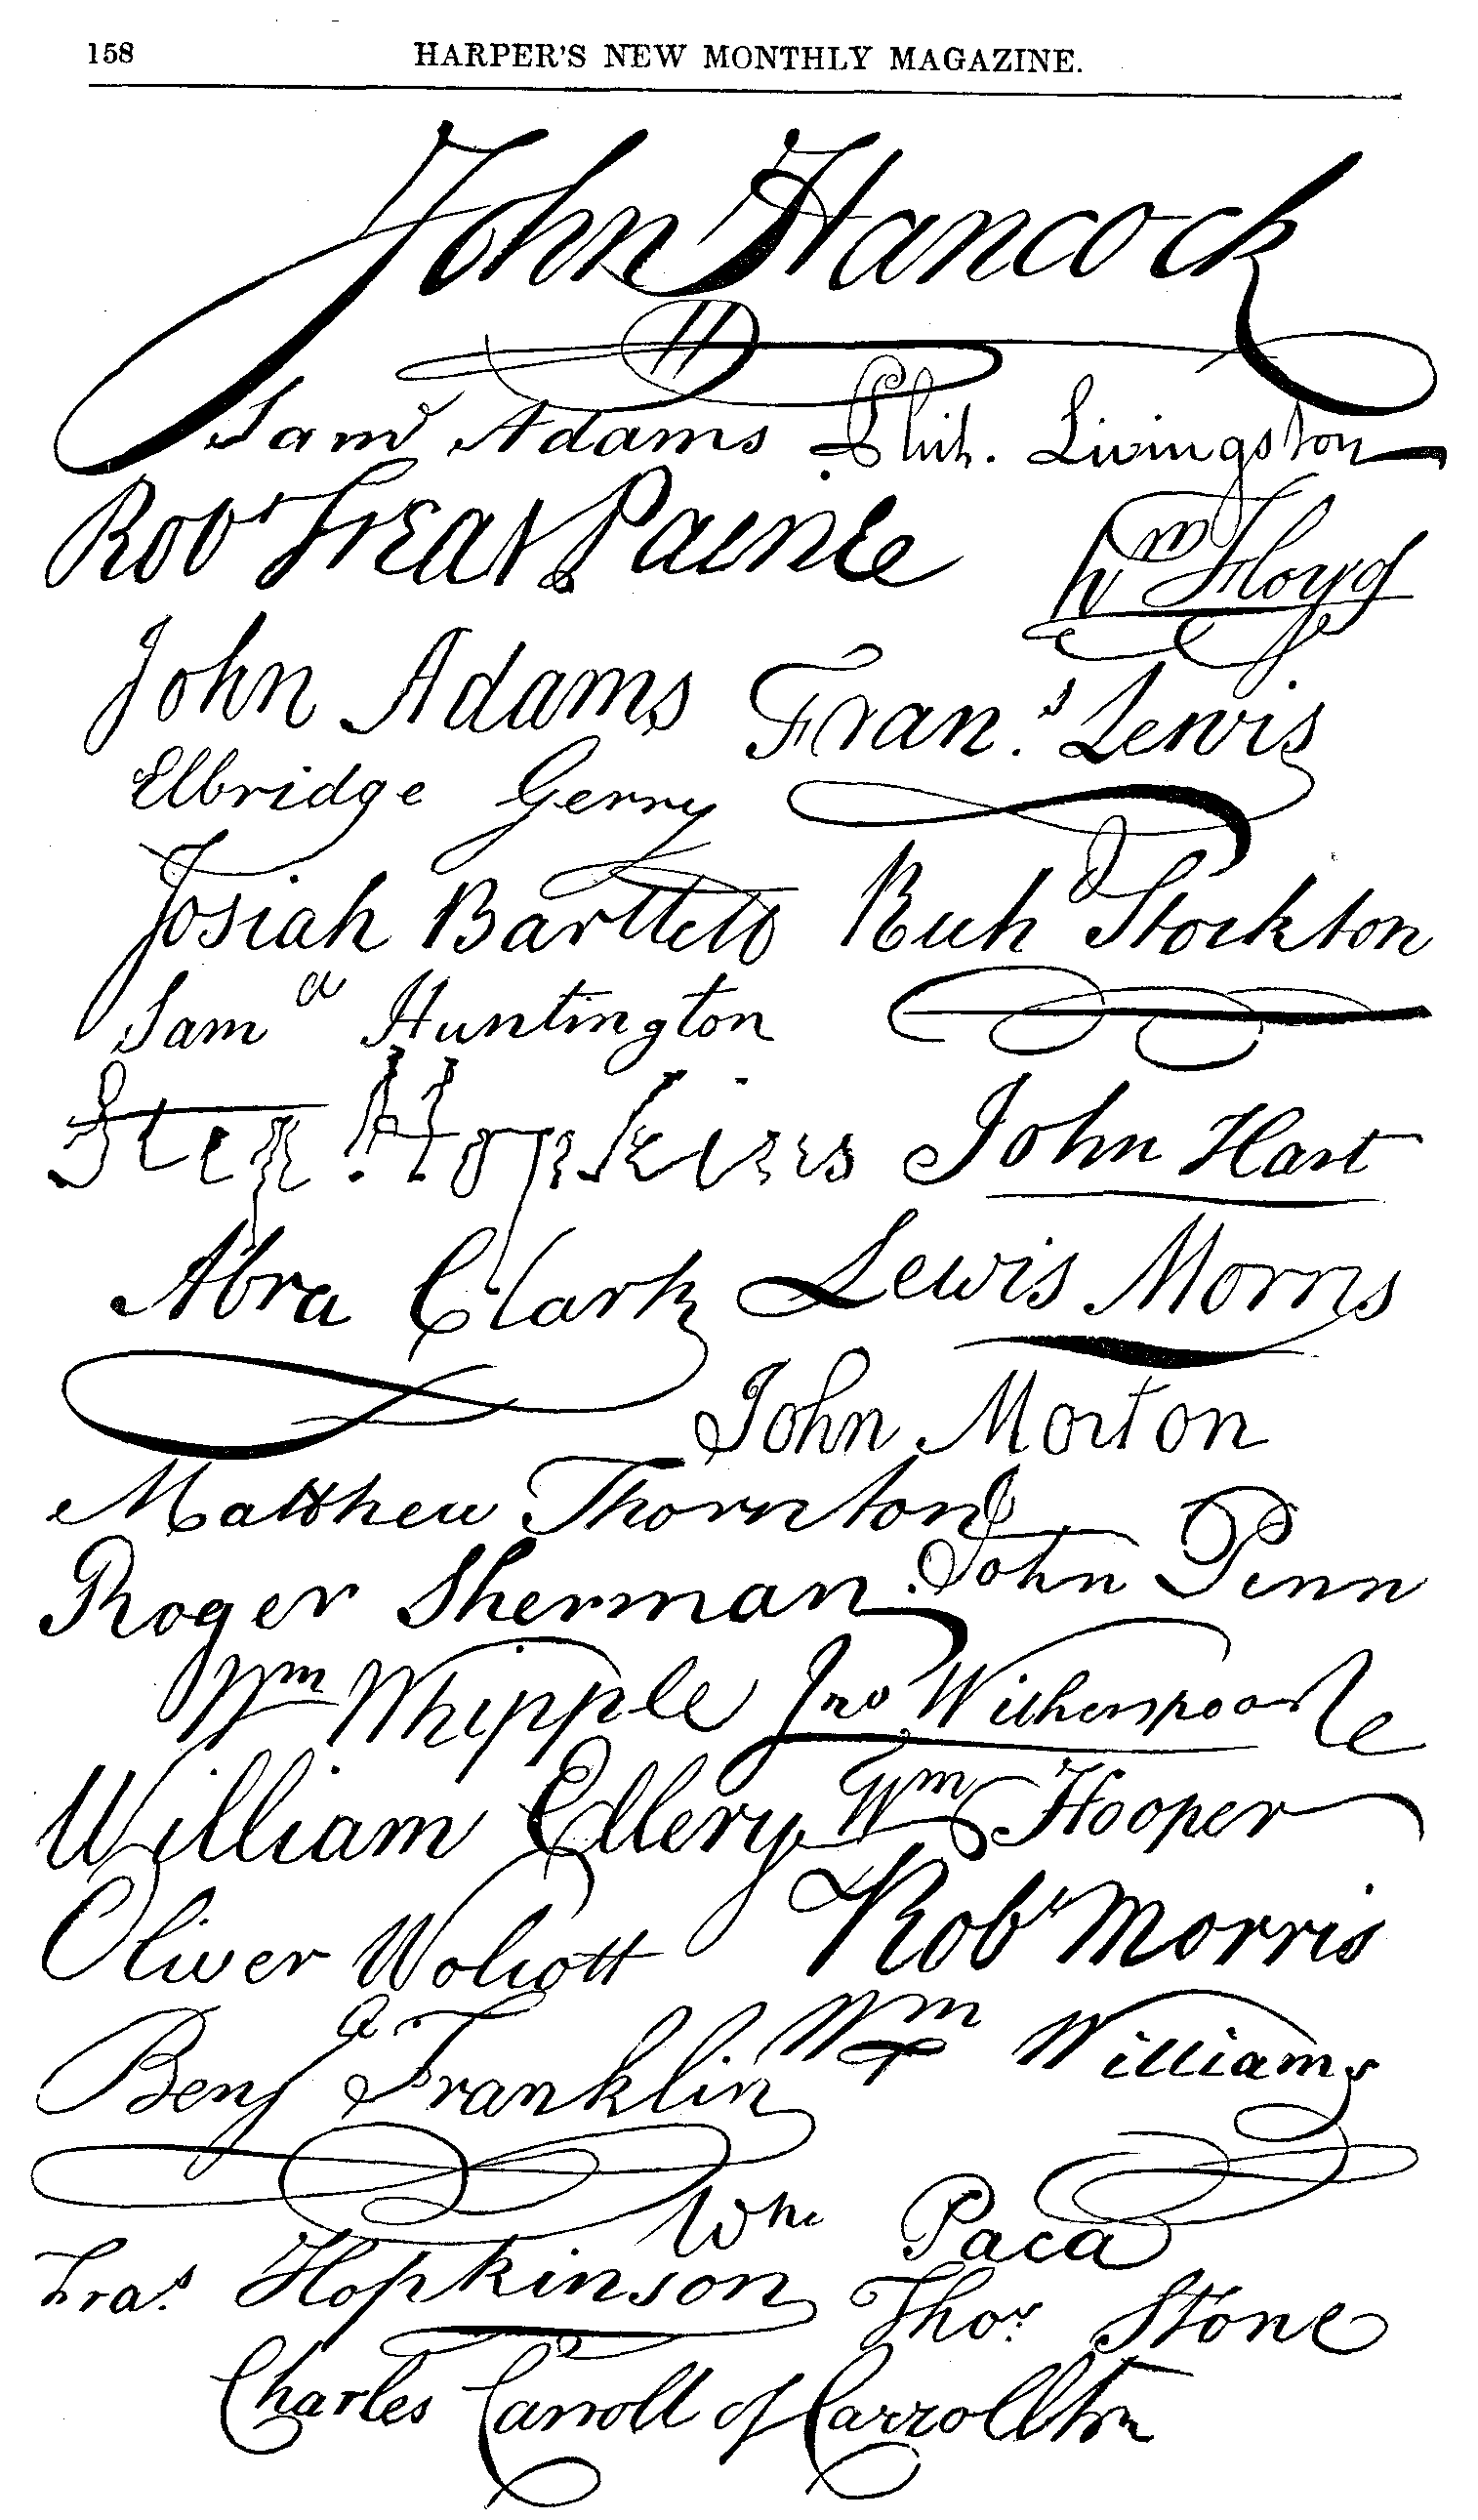 158 HARPER'S NEW MONTHLY MAGAZINE.
John Hancock
Saml Adams Phil. Livingston
Robt Treat Paine Wm Floyd
John Adams Frans. Lewis
Elbridge Gerry
Josiah Bartlett Richd Stockton
Saml Huntington
Step. Hopkins John Hart
Abra Clark Lewis Morris
John Morton
Matthew Thornton
Roger Sherman John Penn
Wm Whipple Jno Witherspoon
William Ellery Wm Hooper
Oliver Wolcott Robt Morris
Benja Franklin Wm Williams
Wm Paca
Fras. Hopkinson Thos. Stone
Charles Carroll of Carrollton